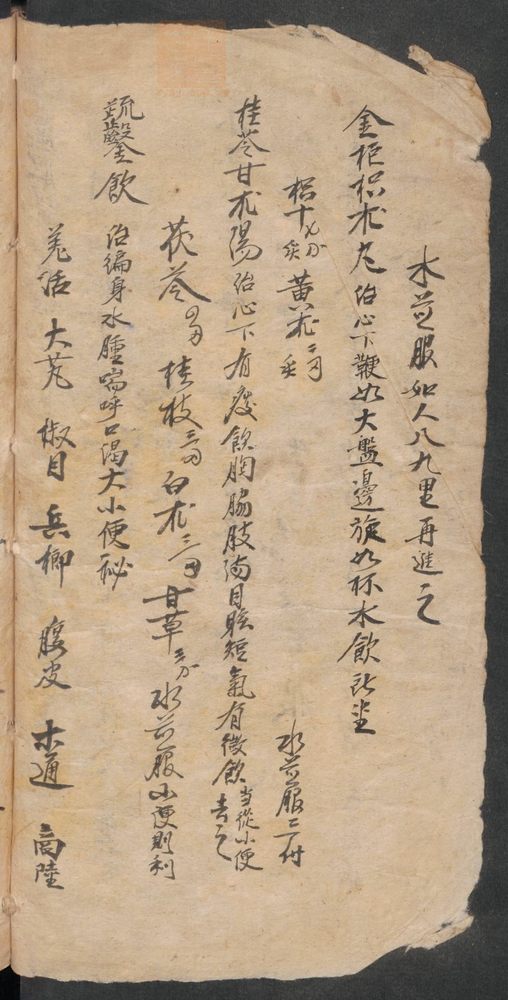 水煎服如人八九里再進之
金柜枳朮丸治心下鞕如大盤邊旋如杯水飲所
枳十 黄朮二
水煎服二付
桂苓甘朮湯治心下有痰飲胸脇肢滿目眩短氣有微飲當從小便去之
茯苓 桂枝三 白朮三 甘草 水煎服小便則利
疏鑿飲 治編身水腫喘呼口渴大小便秘
羌活 大艽 椒目 兵榔 腹皮 木通 商陸